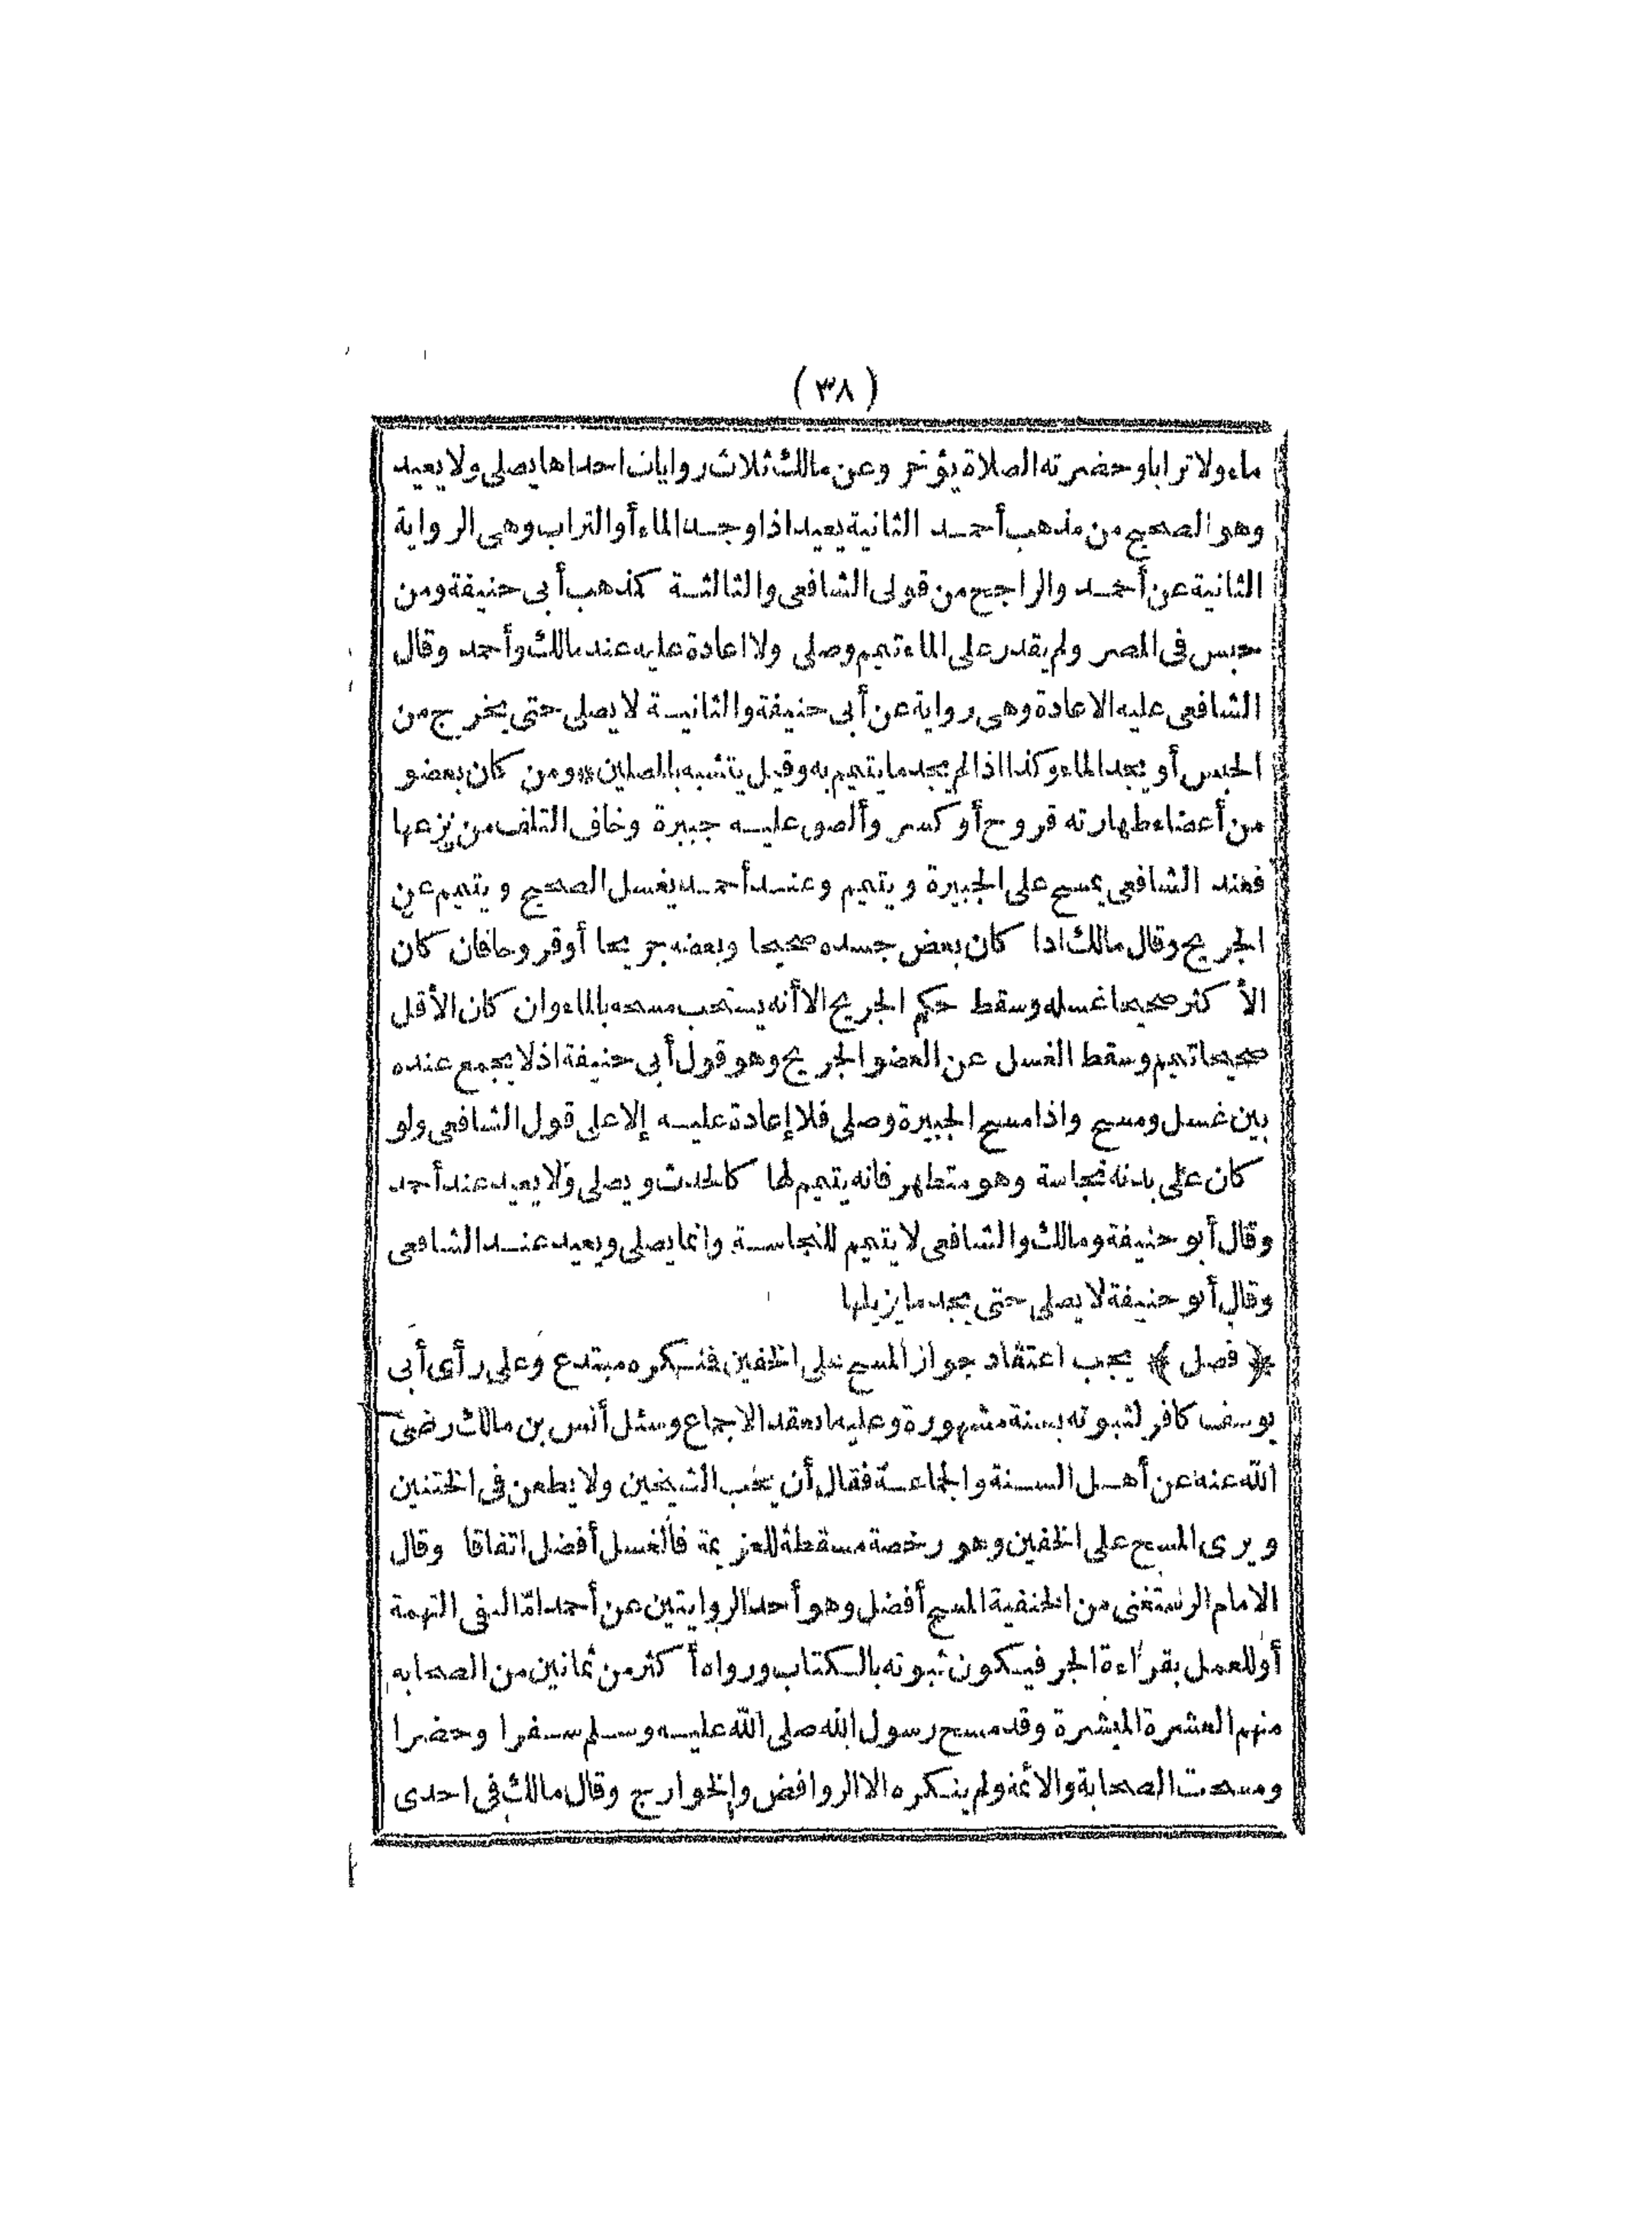 (٣٨)
ماء ولا ترابا وحضرته الصلاة يؤخر وعن مالك ثلاث روايات احداها يصلى ولا يعيد
وهو الصحيح من مذهب أحمد الثانية يعيد اذا وجد الماء أو التراب وهى الرواية
الثانية عن أحمد والراجح من قولى الشافعى والثالثة كمذهب أبى حنيفة ومن
حبس فى المصر ولم يقدر على الماء تيمم وصلى ولا اعادة عليه عند مالك وأحمد وقال
الشافعى عليه الاعادة وهى رواية عن أبى حنيفة والثانية لا يصلى حتى يخرج من
الحبس أو يجد الماء وكذا اذا لم يجد ما يتيمم به وقيل يتشبه بالمصلين * ومن كان بعضو
من أعضاء طهارته قروح أو كسر وألصق عليه جبيرة وخاف التلف من نزعها
فعند الشافعى يمسح على الجبيرة ويتيمم وعند أحمد يغسل الصحيح ويتيمم عن
الجريح وقال مالك اذا كان بعض جسده صحيحا وبعضه جريحا أو قروحا فان كان
الأكثر صحيحا غسله وسقط حكم الجريح الا أنه يستحب مسحه بالماء وان كان الأقل
صحيحا تيمم وسقط الغسل عن العضو الجريح وهو قول أبى حنيفة اذ لا يجمع عنده
بين غسل ومسح واذا مسح الجبيرة وصلى فلا إعادة عليه إلا على قول الشافعى ولو
كان على بدنه نجاسة وهو متطهر فانه يتيمم لها كالحدث ويصلى ولا يعيد عند أحمد
وقال أبو حنيفة ومالك والشافعى لا يتيمم للنجاسة وانما يصلى ويعيد عند الشافعى
وقال أبو حنيفة لا يصلى حتى يجد ما يزيلها
﴿ فصل ﴾ يجب اعتقاد جواز المسح على الخفين فمنكره مبتدع وعلى رأى أبى
يوسف كافر لثبوته بسنة مشهورة وعليه انعقد الاجماع وسئل أنس بن مالك رضى
الله عنه عن أهل السنة والجماعة فقال أن يحب الشيخين ولا يطعن فى الختنين
ويرى المسح على الخفين وهو رخصة مسقطة للعزيمة فالغسل أفضل اتفاقا وقال
الامام الرستغنى من الحنفية المسح أفضل وهو أحد الروايتين عن أحمد امّا لنفى التهمة
أو للعمل بقراءة الجر فيكون ثبوته بالكتاب ورواه أكثر من ثمانين من الصحابه
منهم العشرة المبشرة وقد مسح رسول الله صلى الله عليه وسلم سفرا وحضرا
ومسحت الصحابة والأئمة ولم ينكره الا الروافض والخوارج وقال مالك فى احدى